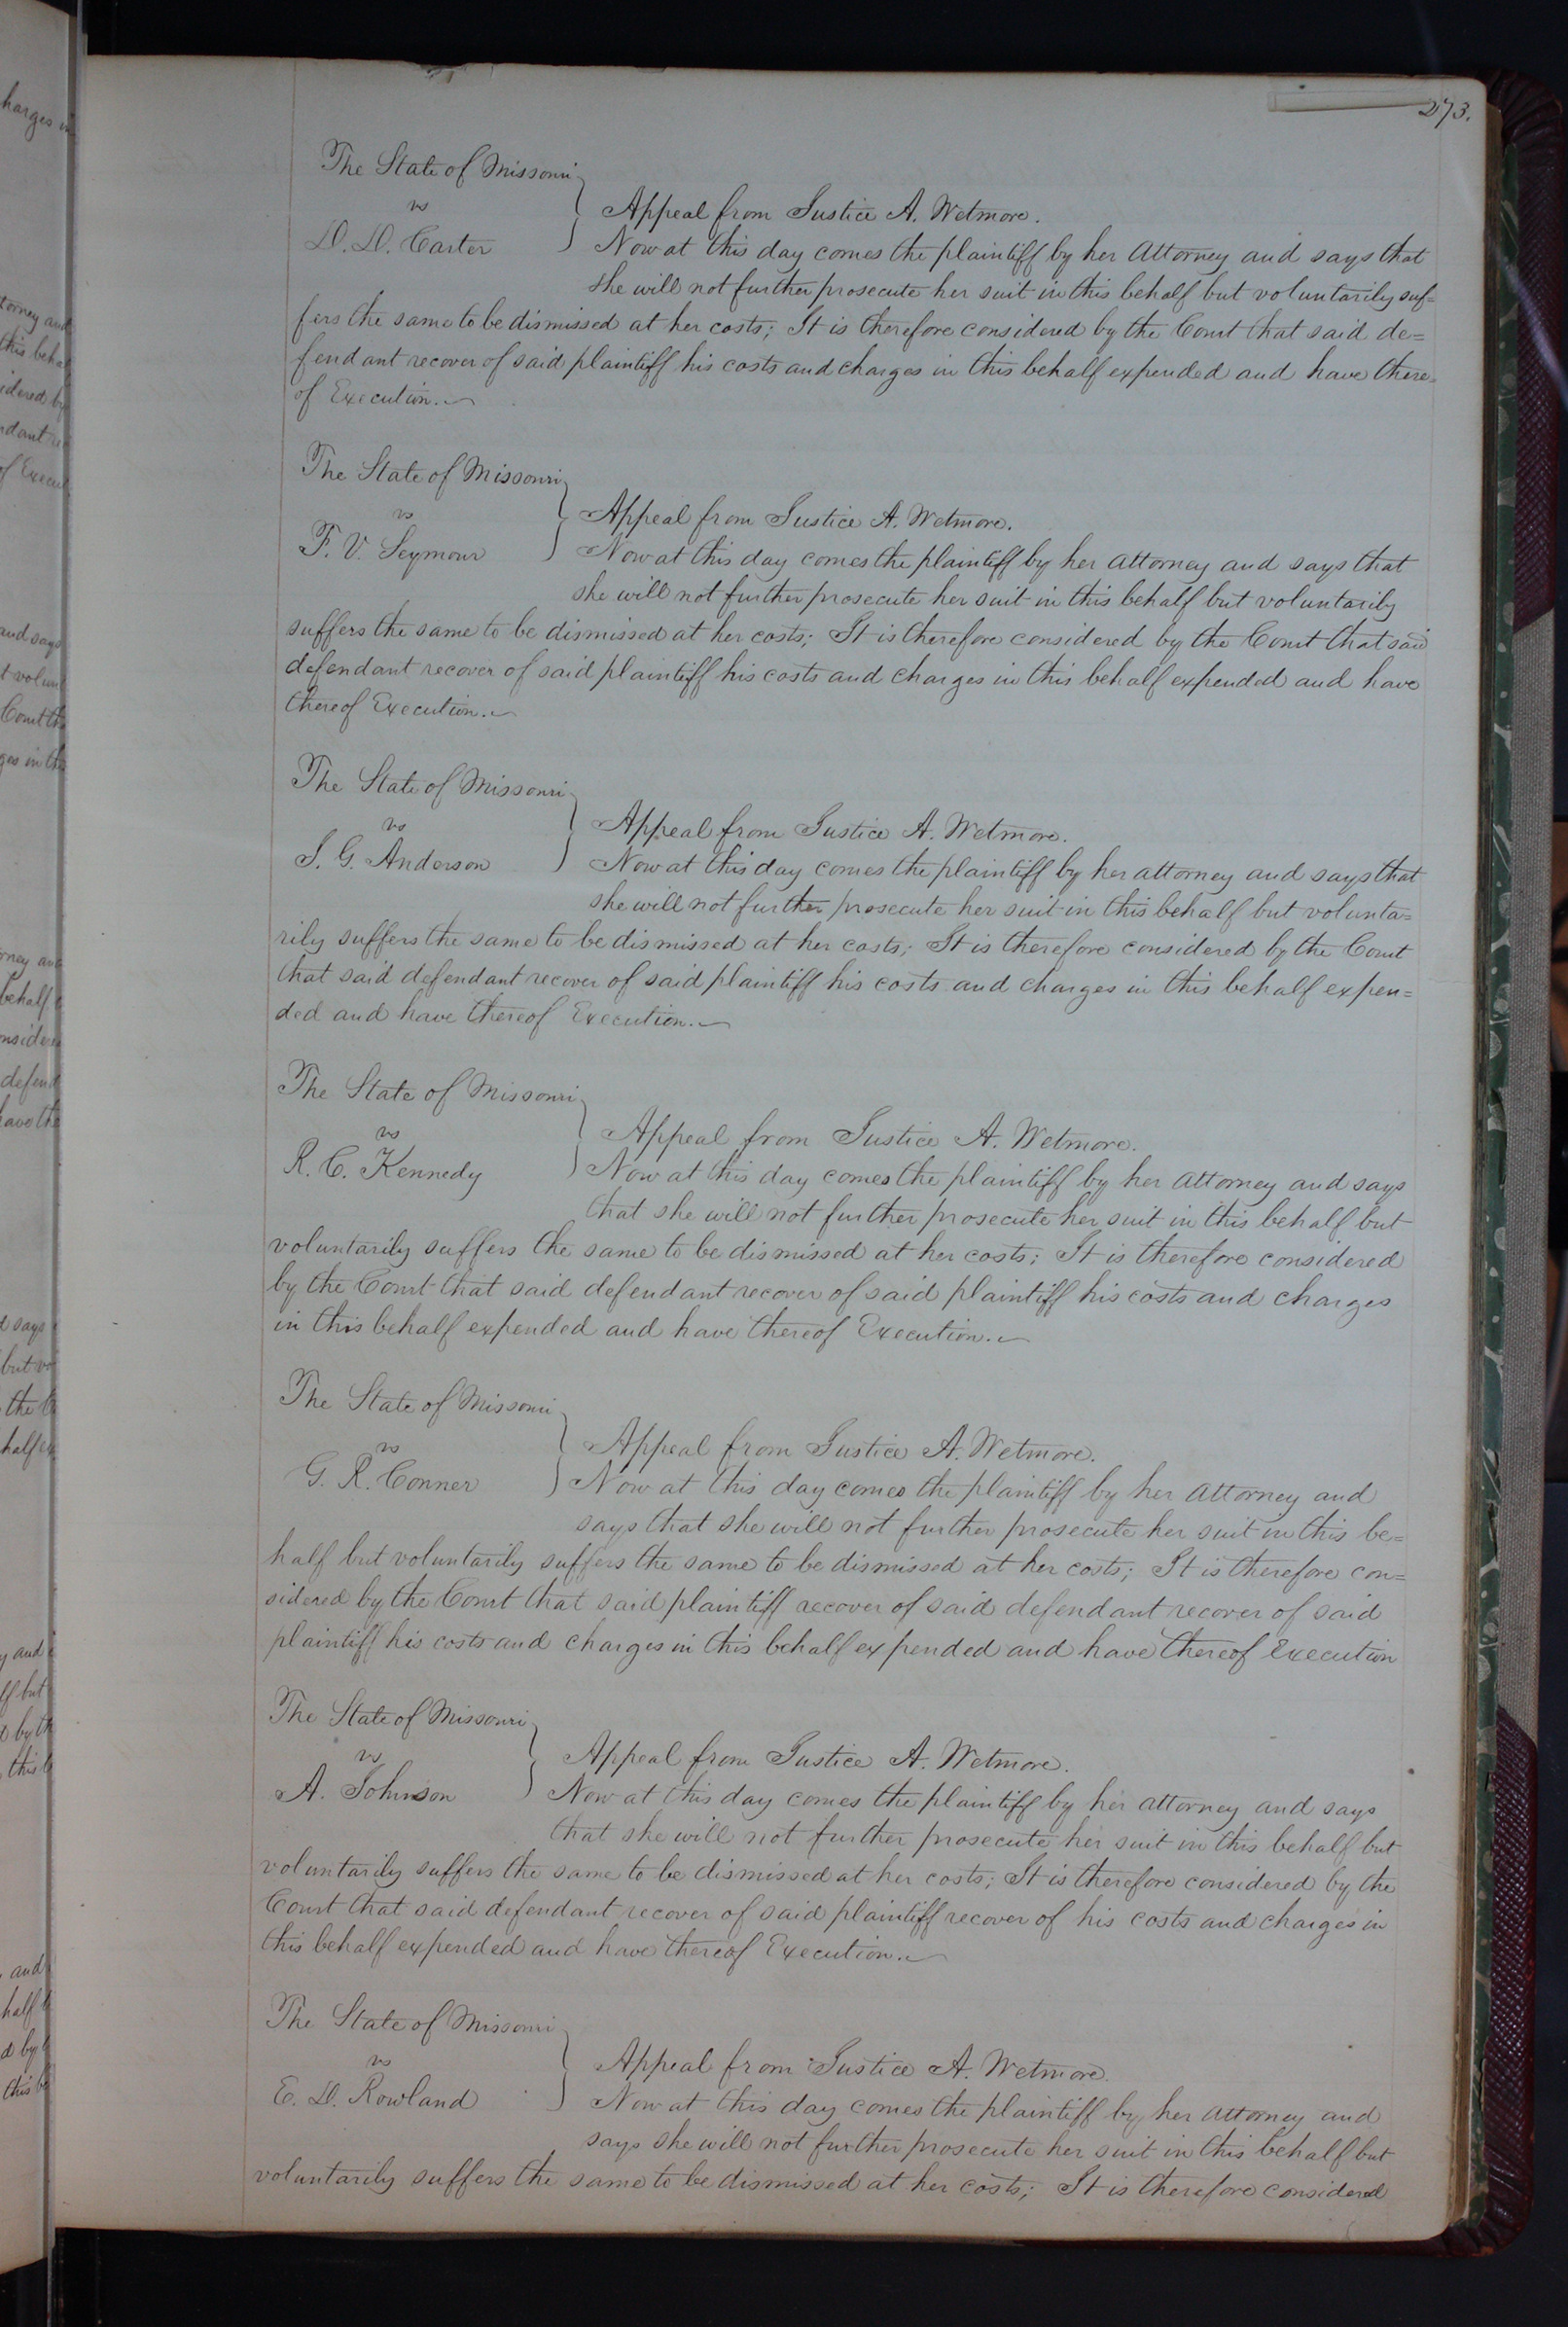 273.
The State of Missouri
vs
Appeal from Justice A. Wetmore.
D. D. Carter
Now at this day comes the plaintiff by her Attorney and says that
she will not further prosecute her suit in this behalf but voluntarily suf=
fers the same to be dismissed at her costs; It is therefore considered by the Court that said de=
fendant recover of said plaintiff his costs and charges in this behalf expended and have there=
of Execution.
The State of Missouri
vs
Appeal from Justice A. Wetmore.
F. V. Seymour
Now at this day comes the plaintiff by her attorney and says that
she will not further prosecute her suit in this behalf but voluntarily
suffers the same to be dismissed at her costs; It is therefore considered by the Court that said
defendant recover of said plaintiff his costs and charges in this behalf expended and have
thereof Execution.
The State of Missouri
vs
Appeal from Justice A. Wetmore.
J. G. Anderson
Now at this day comes the plaintiff by her attorney and says that
she will not further prosecute her suit in this behalf but volunta=
rily suffers the same to be dismissed at her costs; It is therefore considered by the Court
that said defendant recover of said plaintiff his costs and charges in this behalf expen=
ded and have thereof Execution.
The State of Missouri
vs
Appeal from Justice A. Wetmore.
R. C. Kennedy
Now at this day comes the plaintiff by her attorney and says
that she will not further prosecute her suit in this behalf but
voluntarily suffers the same to be dismissed at her costs; It is therefore considered
by the Court that said defendant recover of said plaintiff his costs and charges
in this behalf expended and have thereof Execution.
The State of Missouri
vs
Appeal from Justice A. Wetmore.
G. R. Conner
Now at this day comes the plaintiff by her attorney and
says that she will not further prosecute her suit in this be=
half but voluntarily suffers the same to be dismissed at her costs; It is therefore con=
sidered by the Court that said plaintiff recover of said defendant recover of said
plaintiff his costs and charges in this behalf expended and have thereof Execution
The State of Missouri
vs
Appeal from Justice A. Wetmore.
A. Johnson
Now at this day comes the plaintiff by her attorney and says
that she will not further prosecute her suit in this behalf but
voluntarily suffers the same to be dismissed at her costs; It is therefore considered by the
Court that said defendant recover of said plaintiff recover of his costs and charges in
this behalf expended and have thereof Execution.
The State of Missouri
vs
Appeal from Justice A. Wetmore.
E. D. Rowland
Now at this day comes the plaintiff by her attorney and
says she will not further prosecute her suit in this behalf but
voluntarily suffers the same to be dismissed at her costs; It is therefore considered